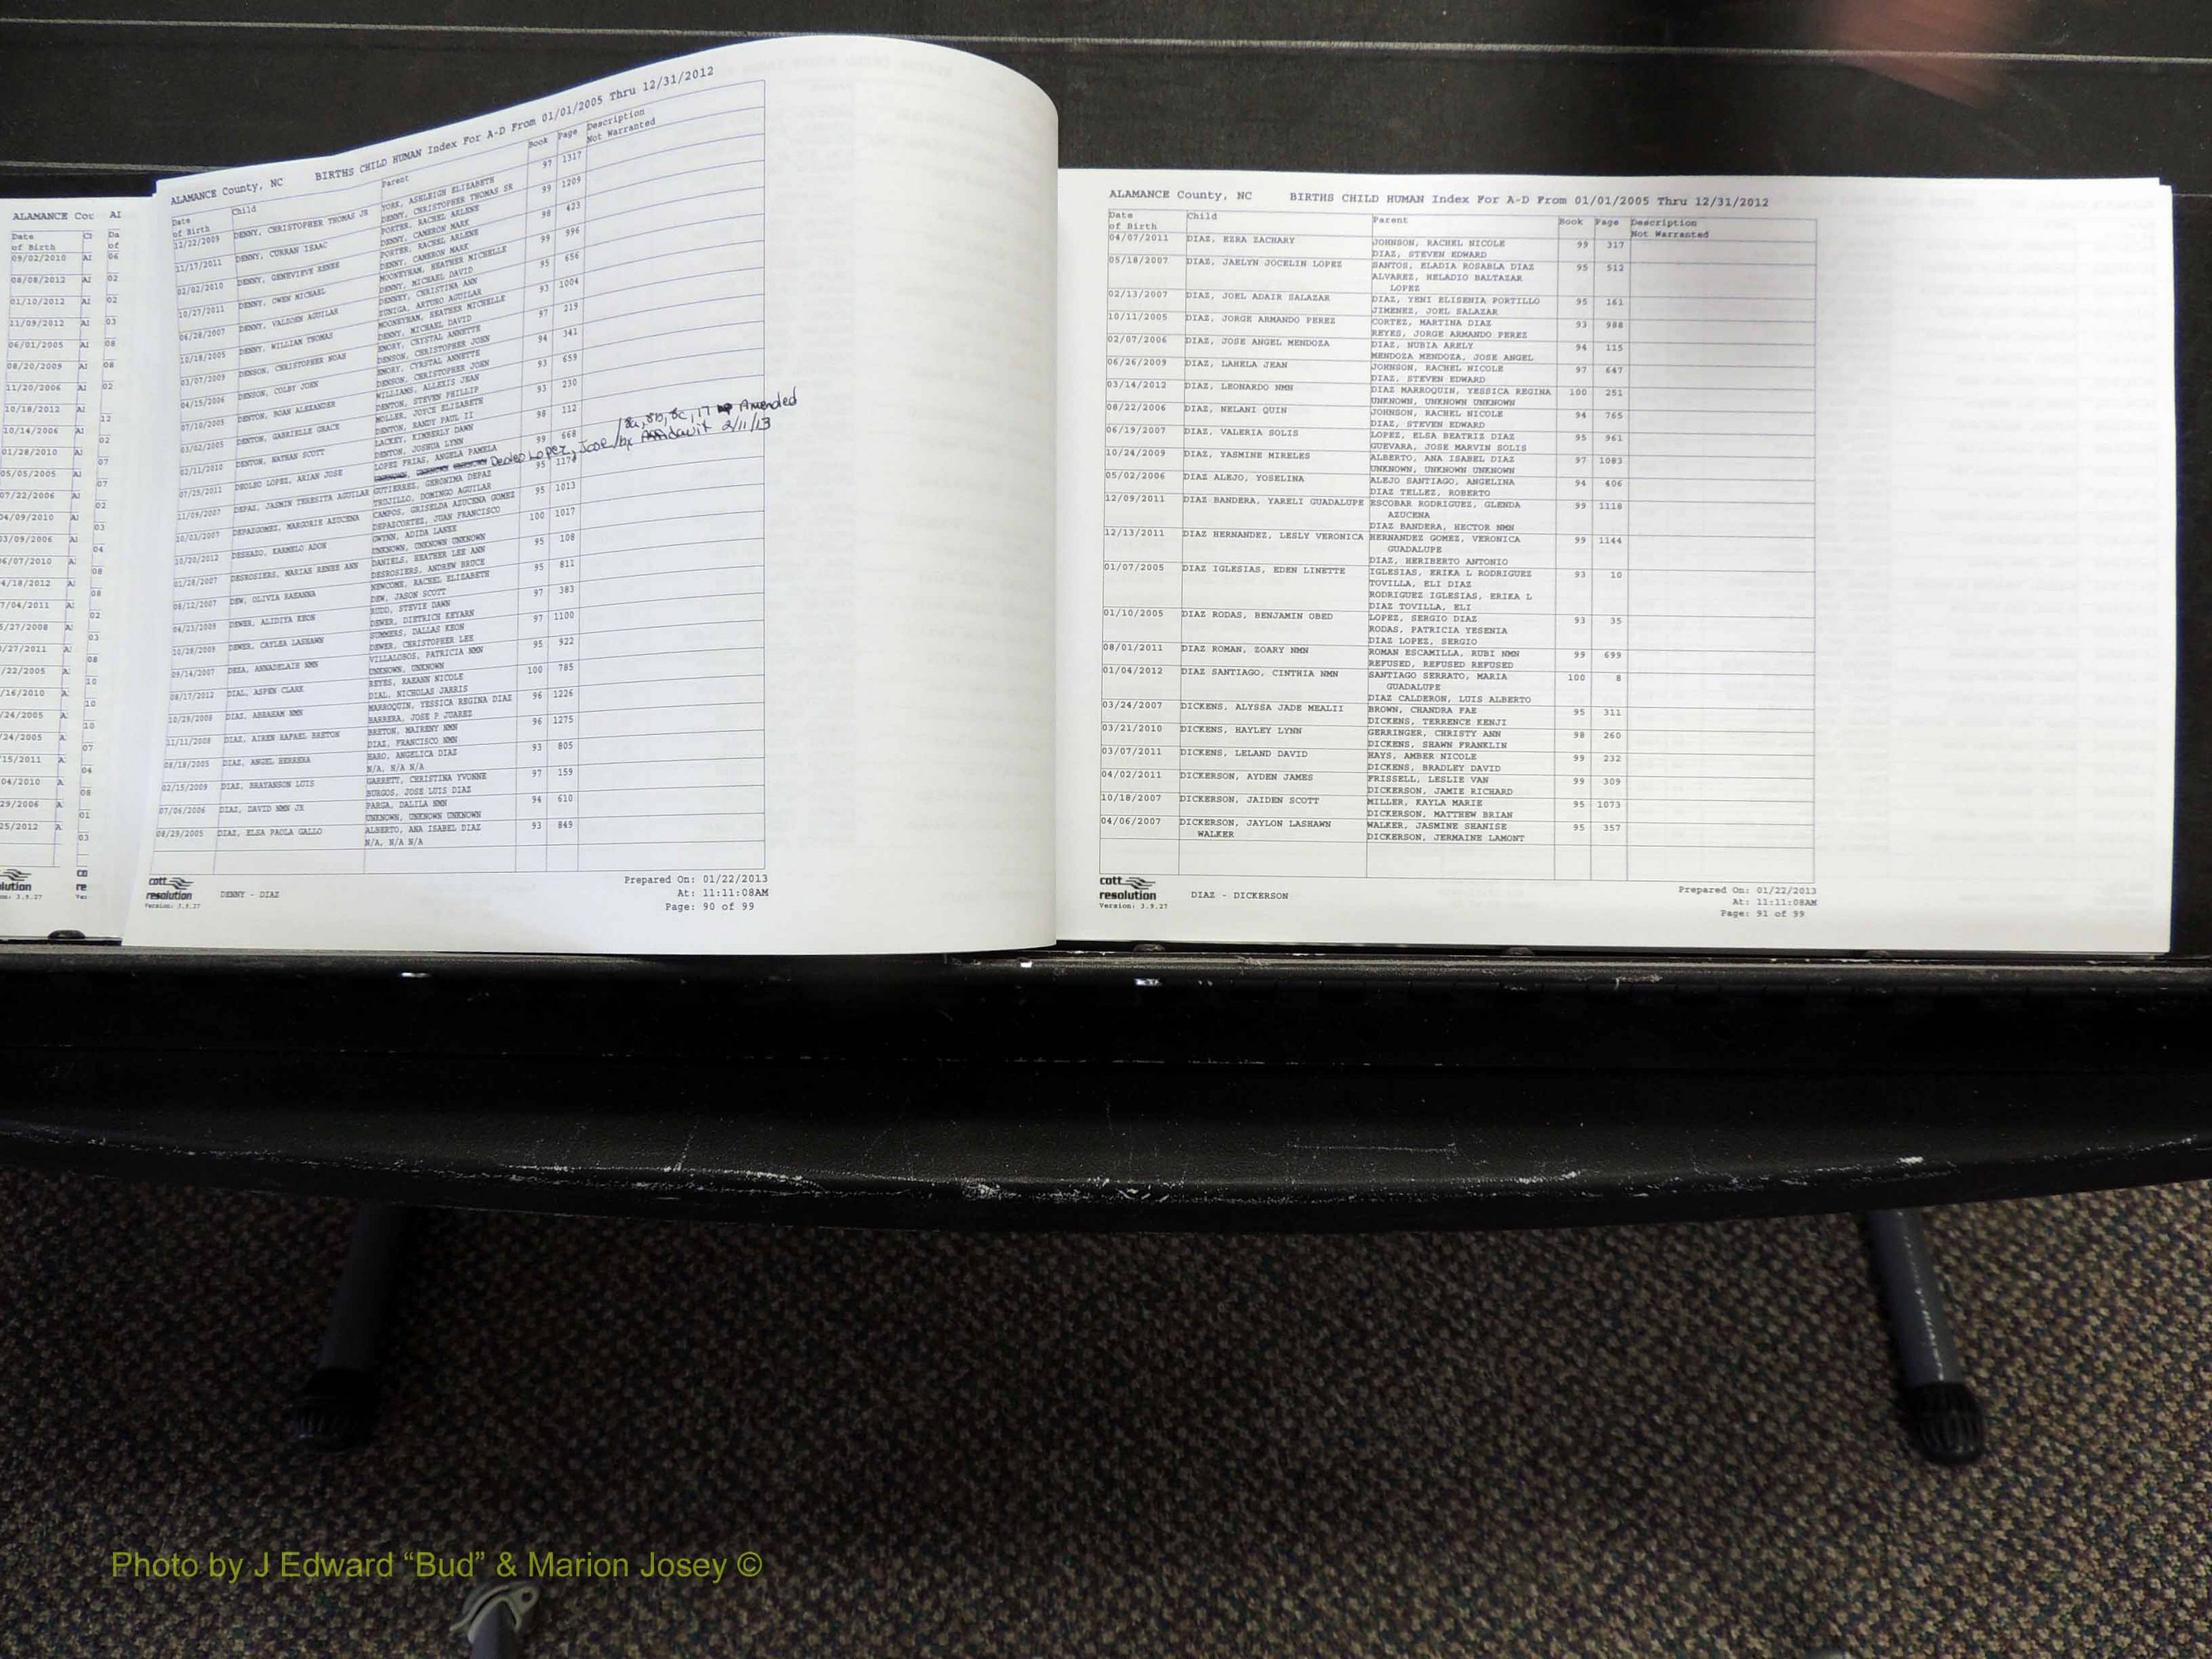 ALAMANCE Cou
Date
of Birth
09/02/2010
08/08/2012
01/10/2012
11/09/2012
06/01/2005
08/20/2009
11/20/2006
10/18/2012
10/14/2006
01/28/2010
05/05/2005
ALAMANCE County, NC BIRTHS CHILD HUMAN Index For A-D From 01/01/2005 Thru 12/31/2012
Date of Birth Child Parent Book Page Description Not Warranted
12/22/2009 DENNY, CHRISTOPHER THOMAS JR YORK, ASHLEIGH ELIZABETH 97 1317
DENNY, CHRISTOPHER THOMAS SR
11/17/2011 DENNY, CURRAN ISAAC PORTER, RACHEL ARLENE 99 1209
DENNY, CAMERON MARK
02/02/2010 DENNY, GENEVIEVE RENEE PORTER, RACHEL ARLENE 98 423
DENNY, CAMERON MARK
10/27/2011 DENNY, OWEN MICHAEL MOONEYHAM, HEATHER MICHELLE 99 996
DENNY, MICHAEL DAVID
06/28/2007 DENNY, VALSOEN AGUILAR DENNEY, CHRISTINA ANN 95 656
ZUNIGA, ARTURO AGUILAR
10/18/2005 DENNY, WILLIAM THOMAS MOONEYHAM, HEATHER MICHELLE 93 1004
DENNY, MICHAEL DAVID
03/07/2009 DENSON, CHRISTOPHER NOAH EMORY, CRYSTAL ANNETTE 97 219
DENSON, CHRISTOPHER JOHN
04/15/2006 DENSON, COLBY JOHN EMORY, CYRSTAL ANNETTE 94 341
DENSON, CHRISTOPHER JOHN
07/10/2005 DENTON, ROAN ALEXANDER WILLIAMS, ALLEXIS JEAN 93 659
DENTON, STEVEN PHILLIP
03/02/2005 DENTON, GABRIELLE GRACE MOLLER, JOYCE ELIZABETH 93 230
DENTON, RANDY PAUL II
02/11/2010 DENTON, NATHAN SCOTT LACKEY, KIMBERLY DAWN 98 112
DENTON, JOSHUA LYNN
07/25/2011 DEOLEO LOPEZ, ARIAN JOSE LOPEZ FRIAS, ANGELA PAMELA 99 668
Deoleo Lopez, Jose / 8a, 8b, 8c, 17 Amended by Affidavit 2/11/13
11/09/2007 DEPAZ, JASMIN TERESITA AGUILAR GUTIERREZ, GERONIMA DEPAZ 95 1174
TRUJILLO, DOMINGO AGUILAR
10/03/2007 DEPAZGOMEZ, MARGORIE AZUCENA CAMPOS, GRISELDA AZUCENA GOMEZ 95 1013
DEPAZCORTEZ, JUAN FRANCISCO
10/20/2012 DESHAZO, KARMELO ADON GWYNN, ADIDA LANEE 100 1017
UNKNOWN, UNKNOWN UNKNOWN
01/28/2007 DESROSIERS, MARIAS RENEE ANN DANIELS, HEATHER LEE ANN 95 108
DESROSIERS, ANDREW BRUCE
08/12/2007 DEW, OLIVIA RAEANNA NEWCOMB, RACHEL ELIZABETH 95 811
DEW, JASON SCOTT
04/23/2009 DEWER, ALIDIYA KEON RUDD, STEVIE DAWN 97 383
DEWER, DIETRICH KEYARN
10/28/2009 DEWER, CAYLEA LASHAWN SUMMERS, DALLAS KEON 97 1100
DEWER, CHRISTOPHER LEE
09/14/2007 DEZA, ANNADELAIH NMN VILLALOBOS, PATRICIA NMN 95 922
UNKNOWN, UNKNOWN
08/17/2012 DIAL, ASPEN CLARK REYES, RAEANN NICOLE 100 785
DIAL, NICHOLAS JARRIS
10/29/2008 DIAZ, ABRAHAM NMN MARROQUIN, YESSICA REGINA DIAZ 96 1226
BARRERA, JOSE P JUAREZ
11/11/2008 DIAZ, AIREN RAFAEL BRETON BRETON, MAIRENY NMN 96 1275
DIAZ, FRANCISCO NMN
08/18/2005 DIAZ, ANGEL HERRERA HARO, ANGELICA DIAZ 93 805
N/A, N/A N/A
02/15/2009 DIAZ, BRAYANSON LUIS GARRETT, CHRISTINA YVONNE 97 159
BURGOS, JOSE LUIS DIAZ
07/06/2006 DIAZ, DAVID NMN JR PARGA, DALILA NMN 94 610
UNKNOWN, UNKNOWN UNKNOWN
08/29/2005 DIAZ, ELSA PAOLA GALLO ALBERTO, ANA ISABEL DIAZ 93 849
N/A, N/A N/A
cott
resolution
Version: 3.9.27
DENNY - DIAZ
Prepared On: 01/22/2013
At: 11:11:08AM
Page: 90 of 99
ALAMANCE County, NC BIRTHS CHILD HUMAN Index For A-D From 01/01/2005 Thru 12/31/2012
Date of Birth Child Parent Book Page Description Not Warranted
04/07/2011 DIAZ, EZRA ZACHARY JOHNSON, RACHEL NICOLE 99 317
DIAZ, STEVEN EDWARD
05/18/2007 DIAZ, JAELYN JOCELIN LOPEZ SANTOS, ELADIA ROSABLA DIAZ 95 512
ALVAREZ, HELADIO BALTAZAR
LOPEZ
02/13/2007 DIAZ, JOEL ADAIR SALAZAR DIAZ, YENI ELISENIA PORTILLO 95 161
JIMENEZ, JOEL SALAZAR
10/11/2005 DIAZ, JORGE ARMANDO PEREZ CORTEZ, MARTINA DIAZ 93 988
REYES, JORGE ARMANDO PEREZ
02/07/2006 DIAZ, JOSE ANGEL MENDOZA DIAZ, NUBIA ARELY 94 115
MENDOZA MENDOZA, JOSE ANGEL
06/26/2009 DIAZ, LAHELA JEAN JOHNSON, RACHEL NICOLE 97 647
DIAZ, STEVEN EDWARD
03/14/2012 DIAZ, LEONARDO NMN DIAZ MARROQUIN, YESSICA REGINA 100 251
UNKNOWN, UNKNOWN UNKNOWN
08/22/2006 DIAZ, NELANI QUIN JOHNSON, RACHEL NICOLE 94 765
DIAZ, STEVEN EDWARD
06/19/2007 DIAZ, VALERIA SOLIS LOPEZ, ELSA BEATRIZ DIAZ 95 961
GUEVARA, JOSE MARVIN SOLIS
10/24/2009 DIAZ, YASMINE MIRELES ALBERTO, ANA ISABEL DIAZ 97 1083
UNKNOWN, UNKNOWN UNKNOWN
05/02/2006 DIAZ ALEJO, YOSELINA ALEJO SANTIAGO, ANGELINA 94 406
DIAZ TELLEZ, ROBERTO
12/09/2011 DIAZ BANDERA, YARELI GUADALUPE ESCOBAR RODRIGUEZ, GLENDA 99 1118
AZUCENA
DIAZ BANDERA, HECTOR NMN
12/13/2011 DIAZ HERNANDEZ, LESLY VERONICA HERNANDEZ GOMEZ, VERONICA 99 1144
GUADALUPE
DIAZ, HERIBERTO ANTONIO
01/07/2005 DIAZ IGLESIAS, EDEN LINETTE IGLESIAS, ERIKA L RODRIGUEZ 93 10
TOVILLA, ELI DIAZ
RODRIGUEZ IGLESIAS, ERIKA L
DIAZ TOVILLA, ELI
01/10/2005 DIAZ RODAS, BENJAMIN OBED LOPEZ, SERGIO DIAZ 93 35
RODAS, PATRICIA YESENIA
DIAZ LOPEZ, SERGIO
08/01/2011 DIAZ ROMAN, ZOARY NMN ROMAN ESCAMILLA, RUBI NMN 99 699
REFUSED, REFUSED REFUSED
01/04/2012 DIAZ SANTIAGO, CINTHIA NMN SANTIAGO SERRATO, MARIA 100 8
GUADALUPE
DIAZ CALDERON, LUIS ALBERTO
03/24/2007 DICKENS, ALYSSA JADE MEALII BROWN, CHANDRA FAE 95 311
DICKENS, TERRENCE KENJI
03/21/2010 DICKENS, HAYLEY LYNN GERRINGER, CHRISTY ANN 98 260
DICKENS, SHAWN FRANKLIN
03/07/2011 DICKENS, LELAND DAVID HAYS, AMBER NICOLE 99 232
DICKENS, BRADLEY DAVID
04/02/2011 DICKERSON, AYDEN JAMES FRISSELL, LESLIE VAN 99 309
DICKERSON, JAMIE RICHARD
10/18/2007 DICKERSON, JAIDEN SCOTT MILLER, KAYLA MARIE 95 1073
DICKERSON, MATTHEW BRIAN
04/06/2007 DICKERSON, JAYLON LASHAWN WALKER, JASMINE SHANISE 95 357
WALKER DICKERSON, JERMAINE LAMONT
cott
resolution
Version: 3.9.27
DIAZ - DICKERSON
Prepared On: 01/22/2013
At: 11:11:08AM
Page: 91 of 99
Photo by J Edward “Bud” & Marion Josey ©